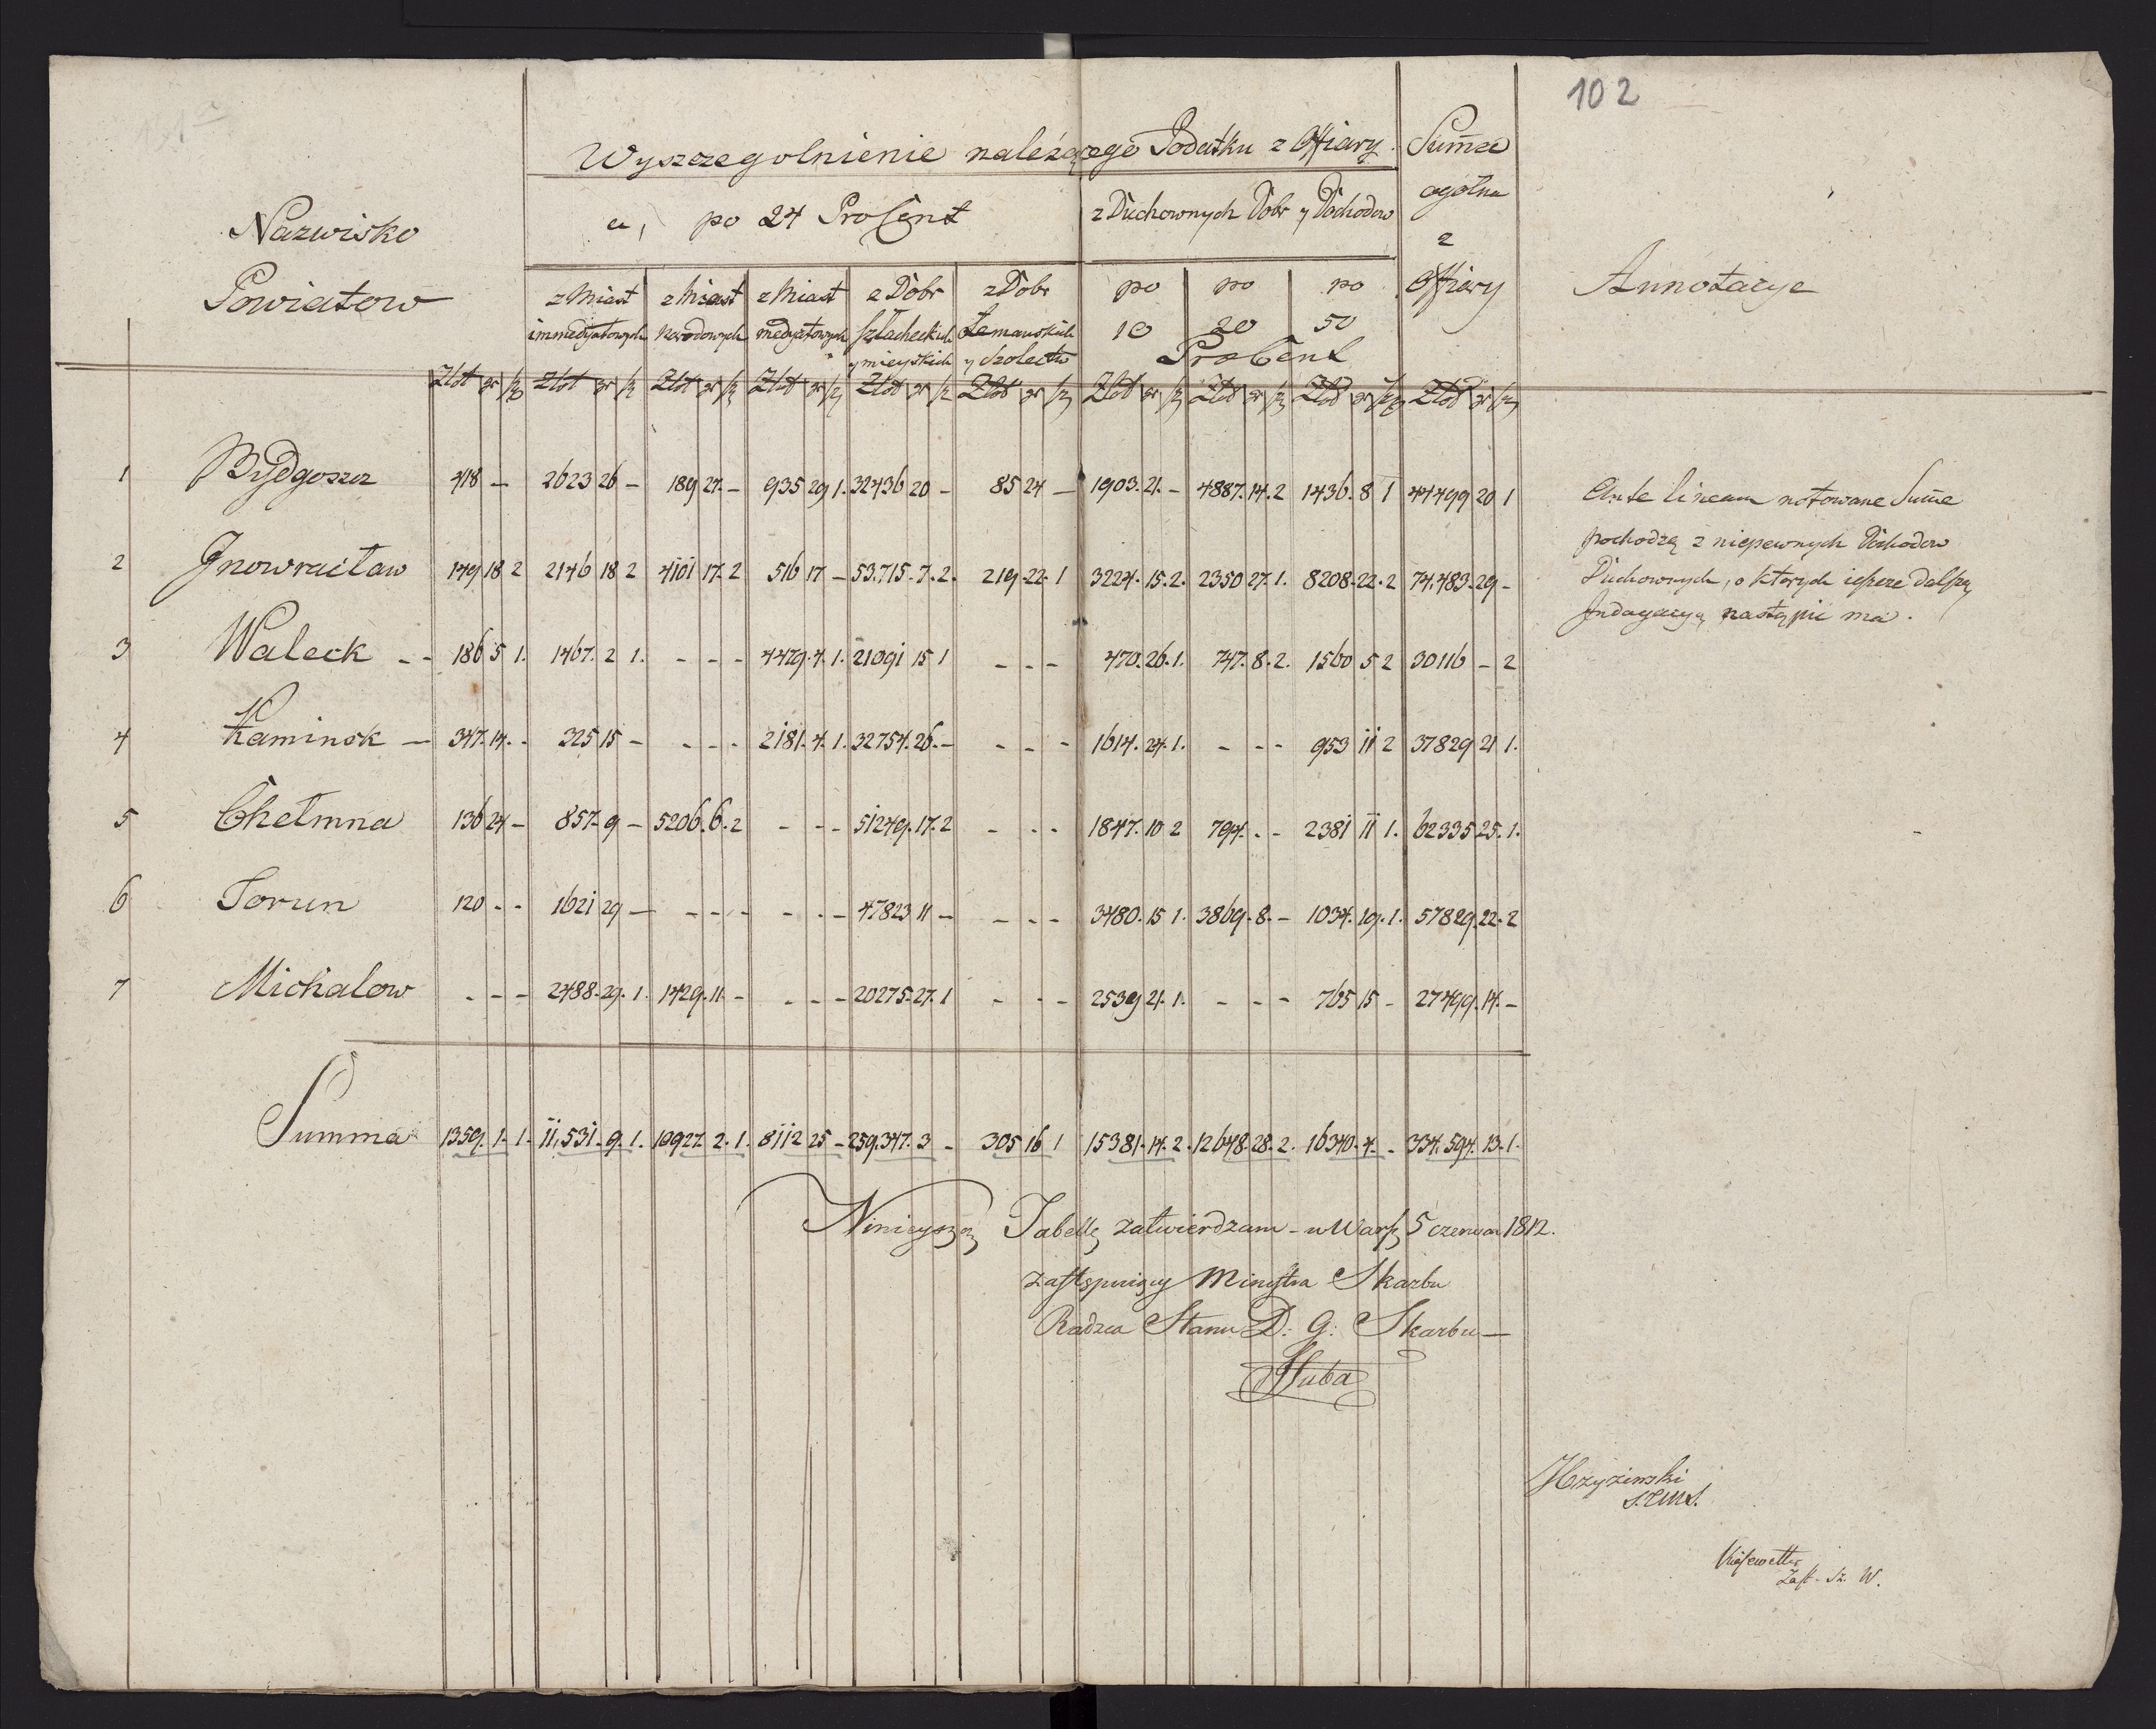 102
Wyszczegolnienie należącego Podatku z Offiary
Summa ogolna z Offiary
Nazwisko Powiatow
a, po 24 ProCent
z Duchownych Dobr y Dochodow
Annotacye
z Miast immedyatowych
z Miast narodowych
z Miast medyatowych
z Dobr szlacheckich y mieyskich
z Dobr Lemanskich y Szolectw
po 10
po 20
po 50
ProCent
Złot gr sz Złot gr sz Złot gr sz Złot gr sz Złot gr sz Złot gr sz Złot gr sz Złot gr sz Złot gr sz Złot gr sz
1 Bydgoszcz 418 - 2623 26 - 189 27 - 935 29 1. 32436 20 - 85 24 - 1903. 21. - 4887. 14. 2 1436. 8 1 44499 20 1
2 Jnowracław 149 18 2 2146 18 2 4101 17. 2 516 17 - 53.715. 7. 2. 219. 22. 1 3224. 15. 2. 2350 27. 1. 8208. 22. 2 74.483. 29 -
3 Waleck -- 186 5 1. 1467. 2 1. - - - 4479. 4. 1. 21091 15 1 - - - 470. 26. 1. 747. 8. 2. 1560 5 2 30116 - 2
4 Kaminsk - 347. 14. - 325 15 - - - - 2181. 4. 1. 32754. 26. - - - - 1614. 24. 1. - - - 953 11 2 37829 21 1.
5 Chełmna 136 24 - 857. 9 - 5206. 6. 2 - - - 51249. 17. 2 - - - 1847. 10 2 794. - - 2381 11 1. 62335 25. 1.
6 Torun 120 - - 1621 29 - - - - - - - 47823 11 - - - - 3480. 15 1. 3869. 8. - 1034. 19. 1. 57829. 22. 2
7 Michalow - - - 2488. 29. 1. 1429. 11 - - - - 20275. 27. 1 - - - 2539 21. 1. - - - 765 15 - 27499. 14. -
Summa 1359. 1. 1. 11,531. 9. 1. 10927. 2. 1. 8112 25 - 259.347. 3 - 305 16 1 15381. 14. 2. 12648. 28. 2. 16340. 4. - 334.594. 13. 1.
Ante lineam notowane Summe
pochodzą z niepewnych Dochodow
Duchownych, o ktorych ieszcze dalszą
Jndagacya nastąpić ma.
Ninieyszą Tabellę zatwierdzam - w Warsz 5 czerwca 1812.
zastępuiący Ministra Skarbu
Radzca Stanu D: G: Skarbu -
Kuba